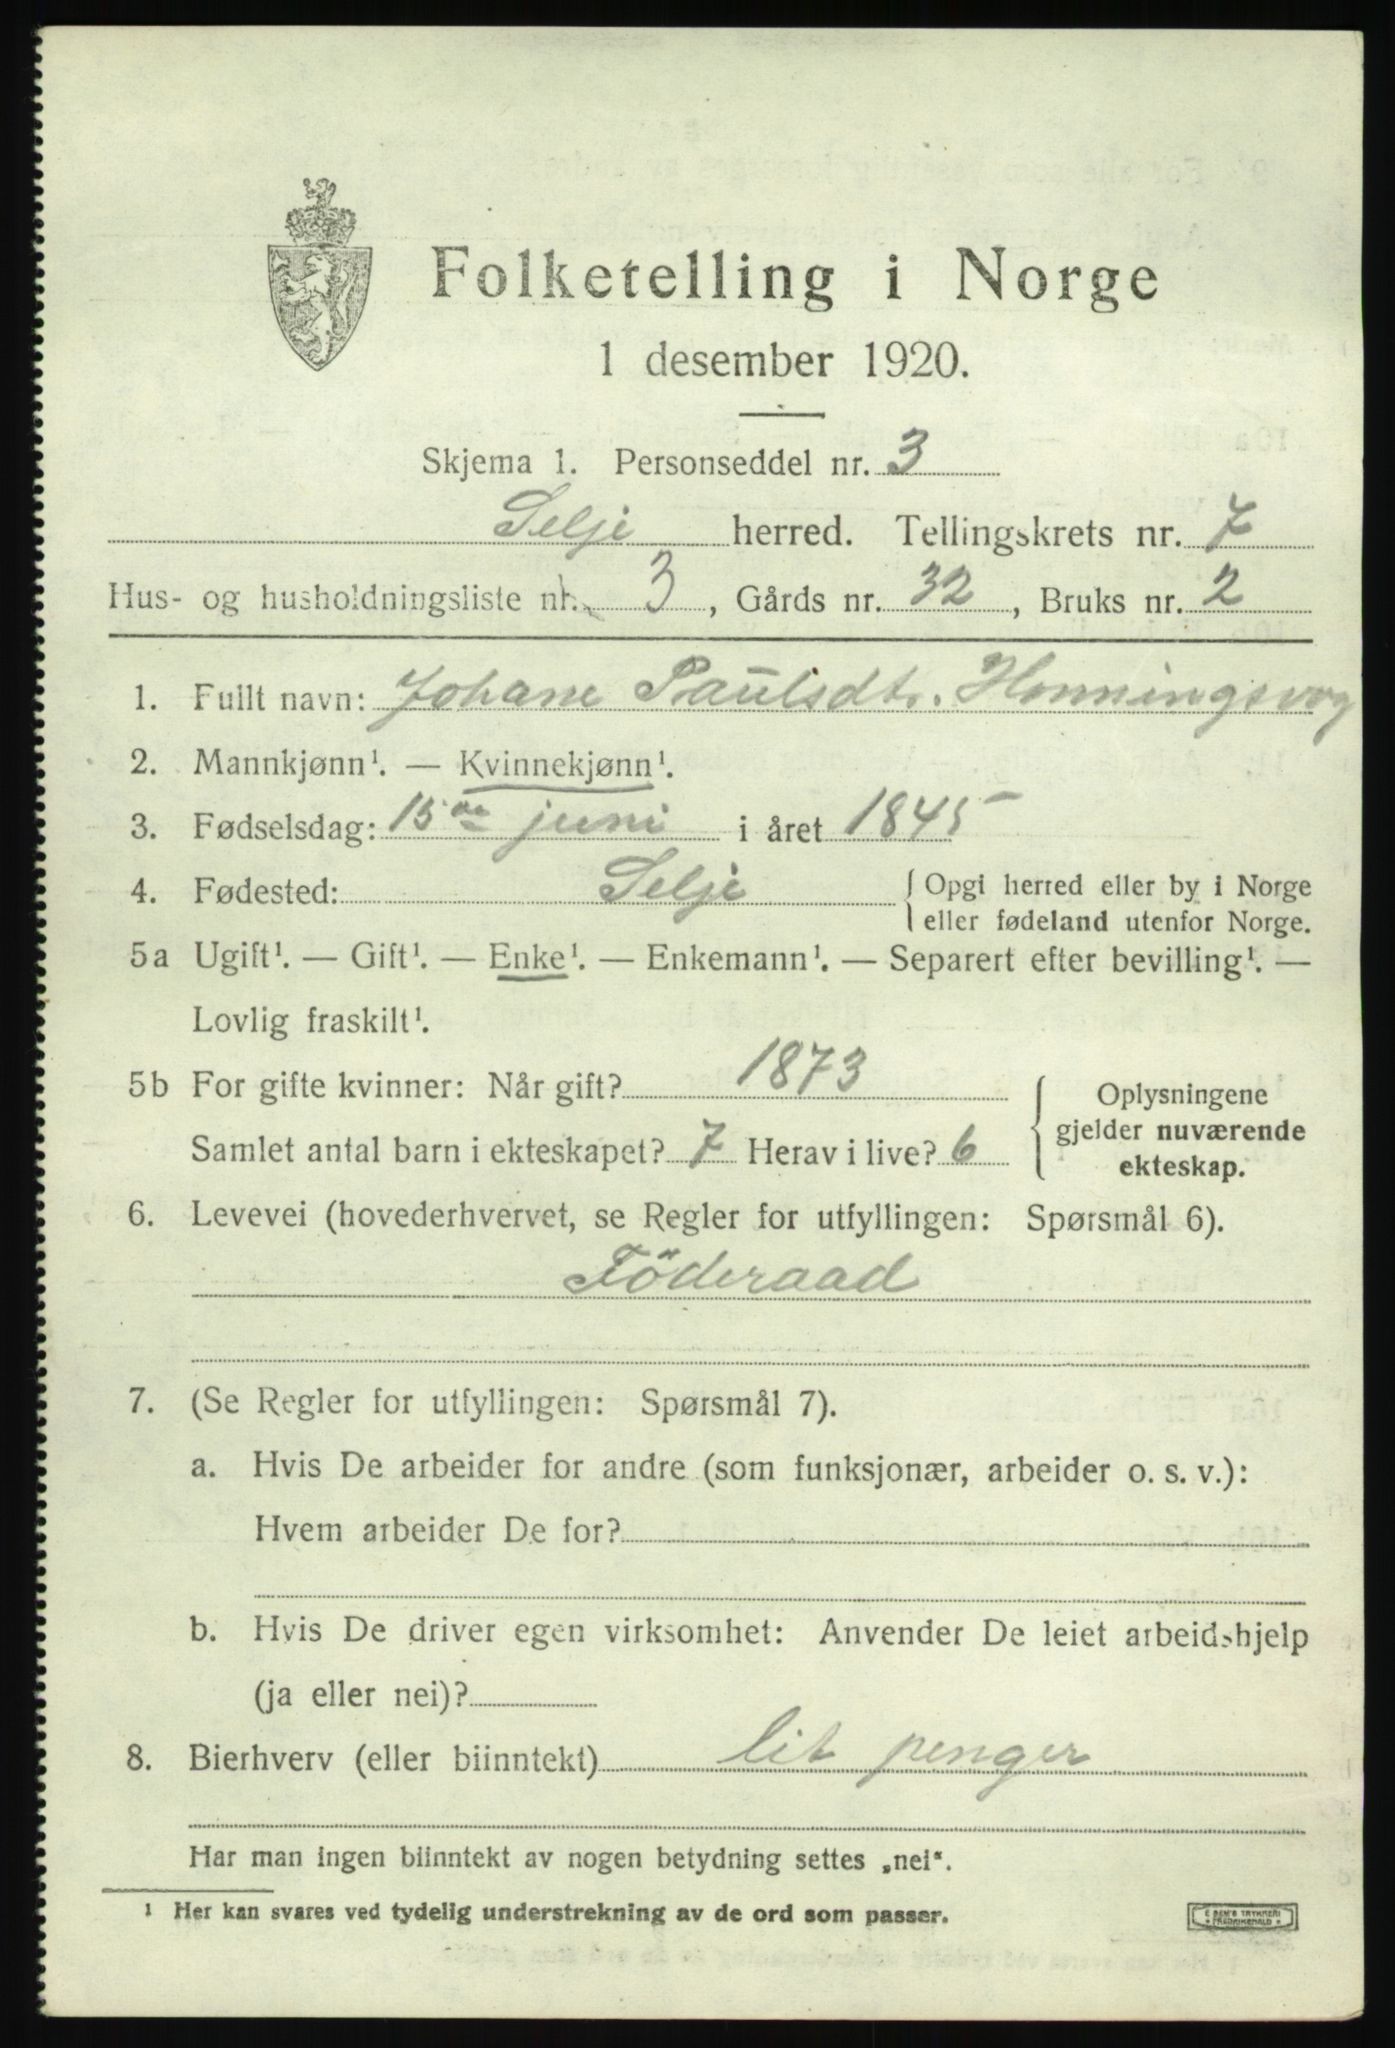 Folketelling i Norge
1 desember 1920.
Skjema 1. Personseddel nr. 3
Selje herred. Tellingskrets nr. 7
Hus- og husholdningsliste nr. 3, Gårds nr. 32, Bruks nr. 2
1. Fullt navn: Johane Paulsdtr. Honningsvog
2. Mannkjønn¹. — Kvinnekjønn¹.
3. Fødselsdag: 15de juni i året 1845
4. Fødested: Selje { Opgi herred eller by i Norge
eller fødeland utenfor Norge.
5a Ugift¹. — Gift¹. — Enke¹. — Enkemann¹. — Separert efter bevilling¹. —
Lovlig fraskilt¹.
5b For gifte kvinner: Når gift? 1873 { Oplysningene
gjelder nuværende
ekteskap.
Samlet antal barn i ekteskapet? 7 Herav i live? 6
6. Levevei (hovederhvervet, se Regler for utfyllingen: Spørsmål 6).
Föderaad
7. (Se Regler for utfyllingen: Spørsmål 7).
a. Hvis De arbeider for andre (som funksjonær, arbeider o. s. v.):
Hvem arbeider De for?
b. Hvis De driver egen virksomhet: Anvender De leiet arbeidshjelp
(ja eller nei)?
8. Bierhverv (eller biinntekt) lit penger
Har man ingen biinntekt av nogen betydning settes „nei“.
¹ Her kan svares ved tydelig understrekning av de ord som passer.
E SEM'S TRYKKERI
FREDRIKSHALD